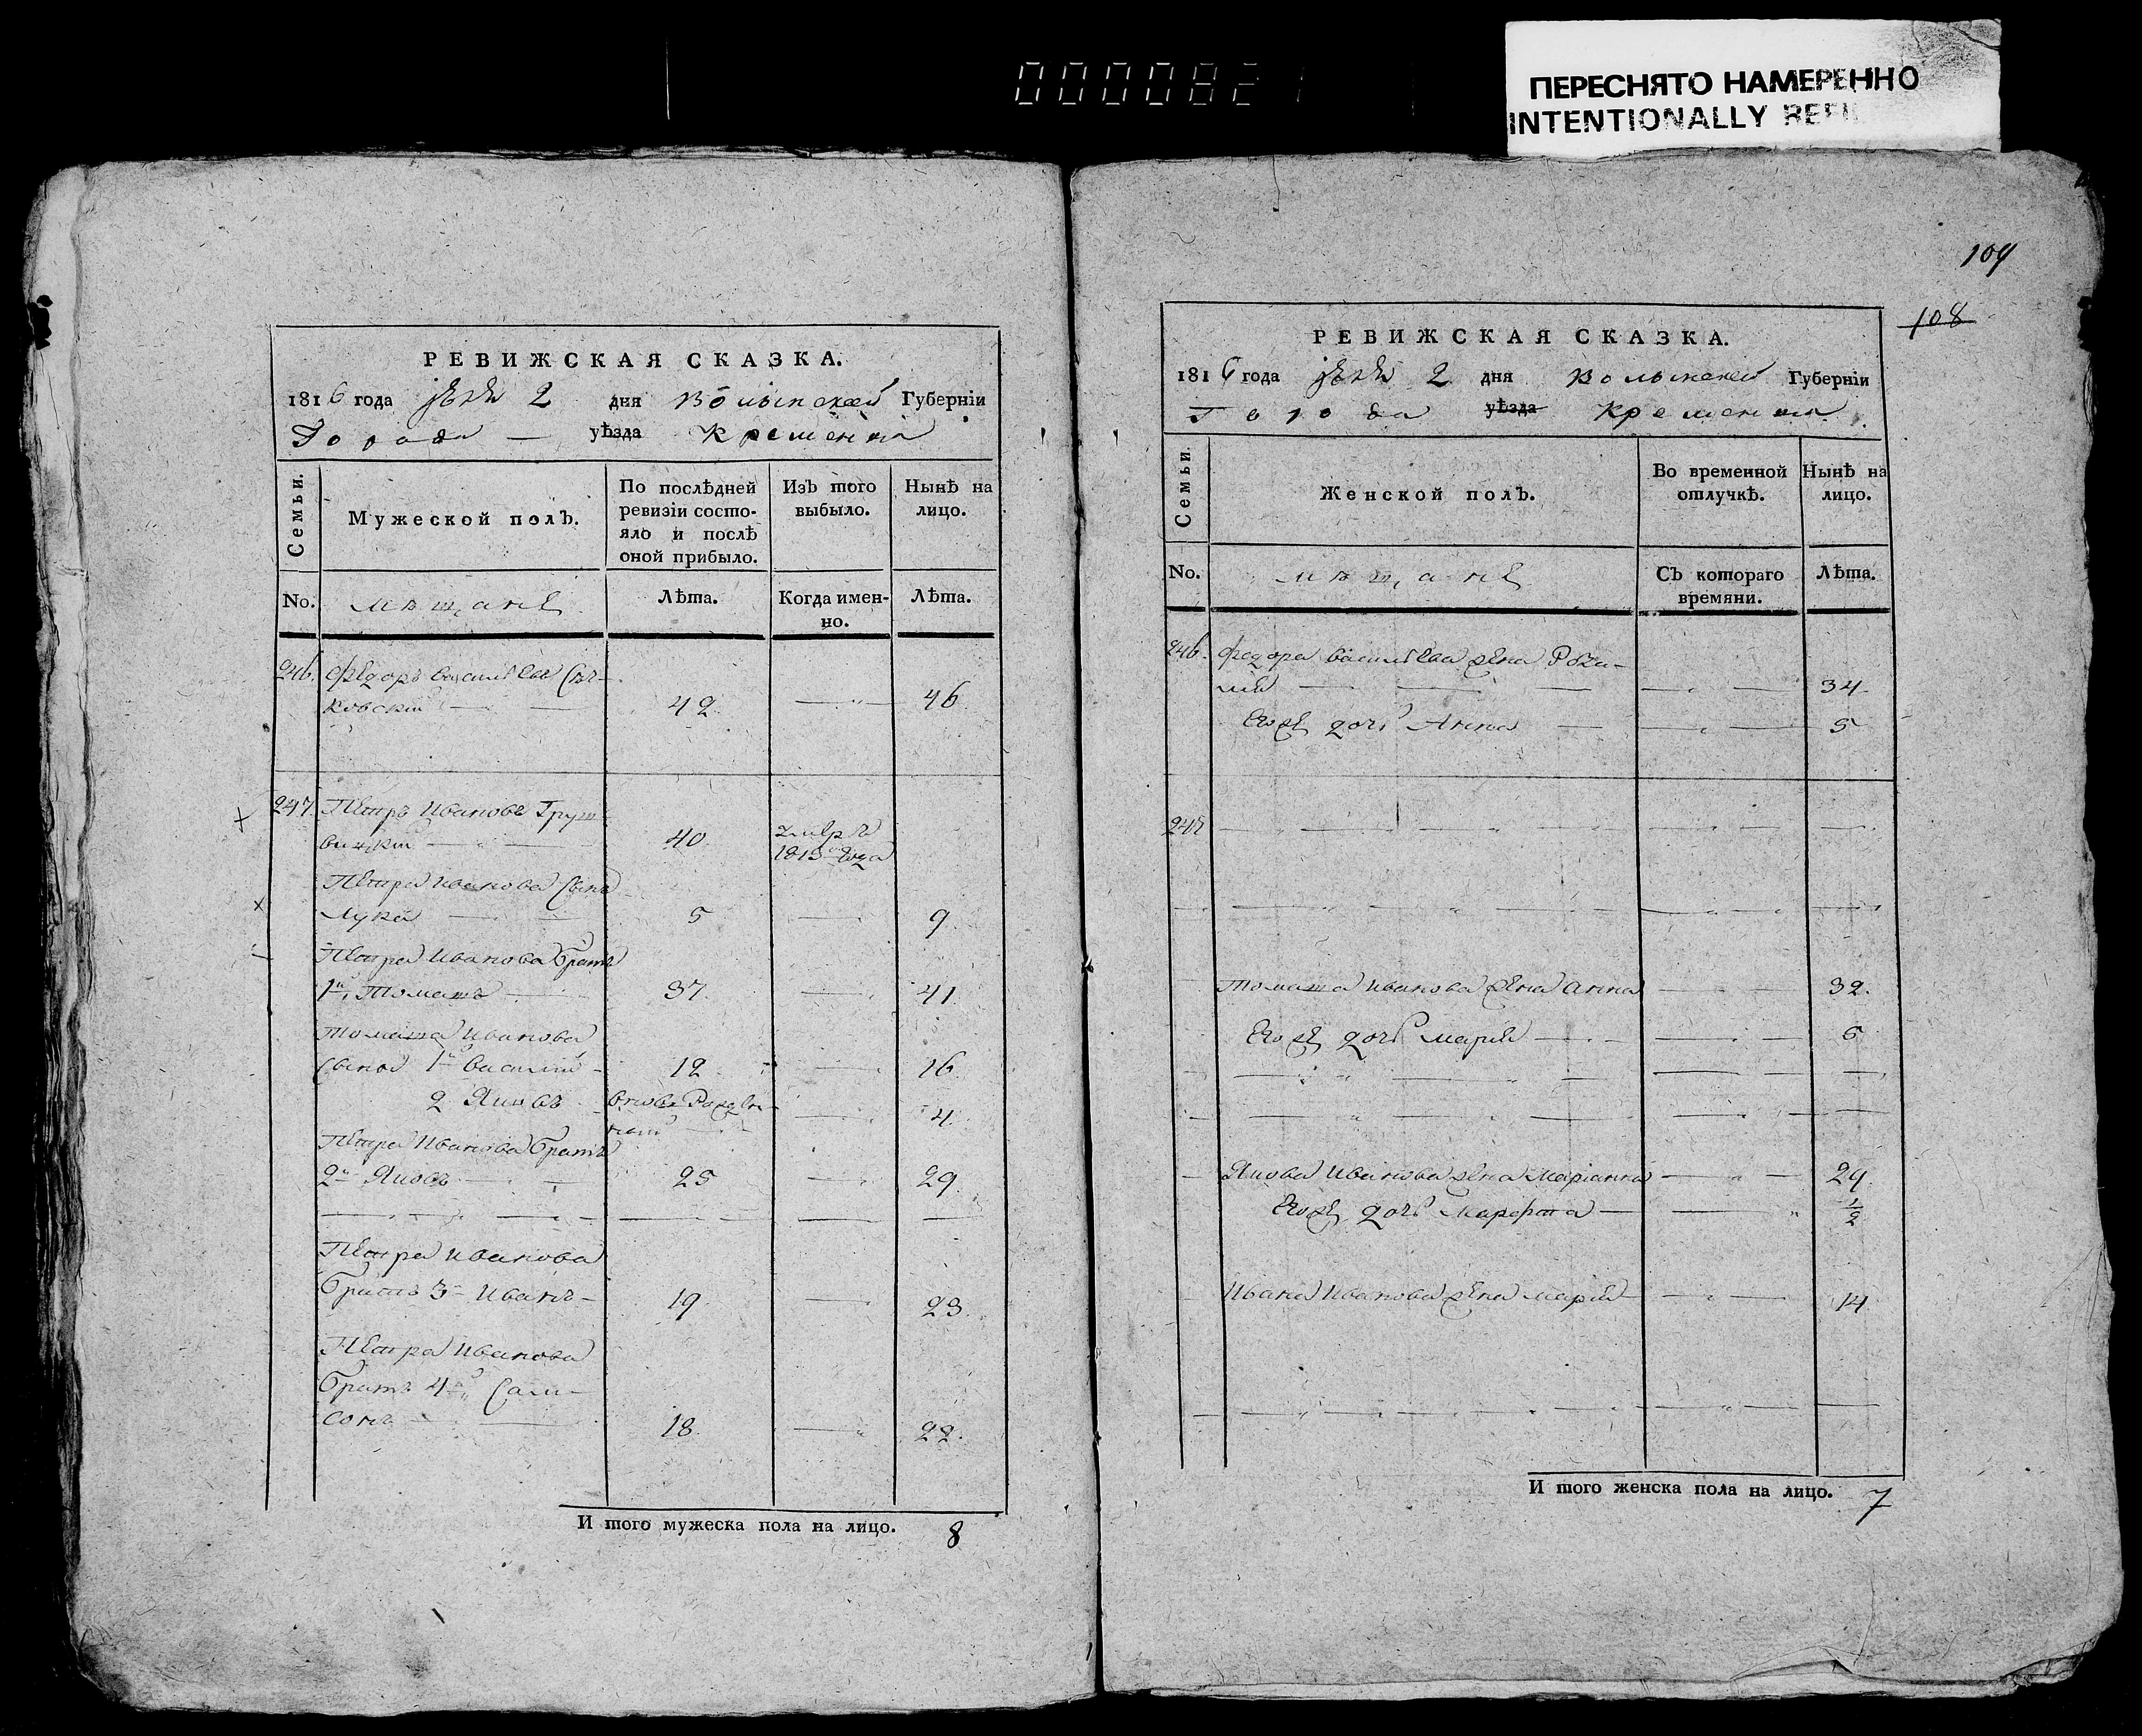 0000821
ПЕРЕСНЯТО НАМЕРЕННО
INTENTIONALLY REFIL
РЕВИЖСКАЯ СКАЗКА.
1816 года 2 дня Волынской Губерніи
Города — уѣзда Кременца
Семьи.
Мужеской полЪ.
По послѣдней ревизіи состо-
яло и послѣ оной прибыло.
ИзЪ того выбыло.
Нынѣ на лицо.
No.
мѣщанѣ
Лѣта.
Когда имен-
но.
Лѣта.
246. Федоръ Васильевъ
ковскій 42 — 46
247. Петръ Ивановъ Груш-
вицкій 40 1813 года
Петра Иванова Сынъ
Лука — 5 — 9
Петра Иванова Братъ
1й Томашъ 37 — 41
Томаша Иванова
Сыновя 1й Василій 12 — 16
2 Яковъ вновь Рожден-
ный — 4
Петра Иванова Братъ
2й Яковъ 25 — 29
Петра Иванова
Братъ 3й Иванъ 19 — 23
Петра Иванова
Братъ 4й Сам-
сонъ 18 — 22.
И того мужеска пола на лицо. 8
104
108
РЕВИЖСКАЯ СКАЗКА.
1816 года 2 дня Волынской Губерніи
Города уѣзда Кременца
Семьи.
Женской полЪ.
Во временной отлучкѣ.
Нынѣ на лицо.
No.
мѣщанѣ
СЪ котораго времяни.
Лѣта.
246. Федора Васильева жена Роза-
лія — 34
Его же дочь Анна — 5
247
Томаша Иванова жена Анна — 32.
Его же дочь Марія —
Якова Иванова жена Маріанна — 29
Его же дочь Марфта — 1/2
Ивана Иванова жена Марія — 14
И того женска пола на лицо. 7